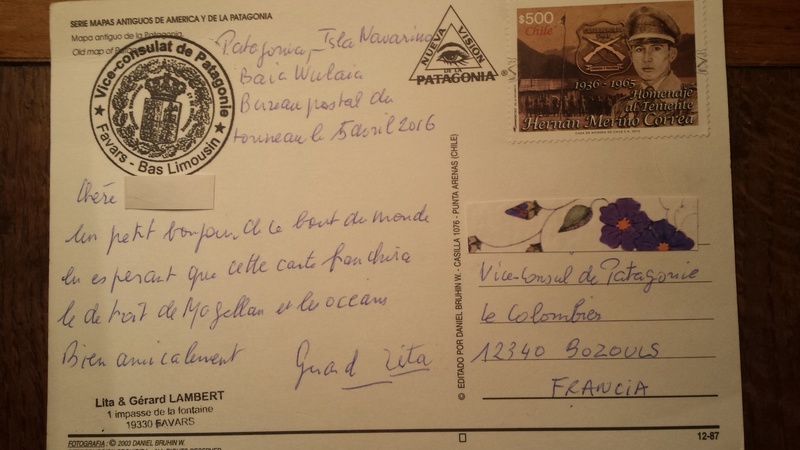 SERIE MAPAS ANTIGUOS DE AMERICA Y DE LA PATAGONIA
Mapa Antiguo de la Patagonia
Old map of
Patagonia, Isla Navarino
Baie Wulaia
Bureau postal du
tonneau le 5 avril 2016
★ Vice-consulat de Patagonie ★
Favars - Bas Limousin
Chéré
Un petit bonjour, de le bout du monde
En esperant que cette carte franchira
le detroit de Magellan et le oceans
Bien amicalement
Lita & Gérard LAMBERT
1 impasse de la fontaine
19330 FAVARS
NUEVA
VISION
DE LA
PATAGONIA
© EDITADO POR DANIEL BRUHIN W. - CASILLA 1076 - PUNTA ARENAS (CHILE)
$500
Chile
1936 - 1965
Homenaje
al Teniente
Hernán Merino Correa
Vice-consul de Patagonie
le Colombier
12340 BOZOULS
FRANCIA
FOTOGRAFIA: © 2003 DANIEL BRUHIN W.
12-87